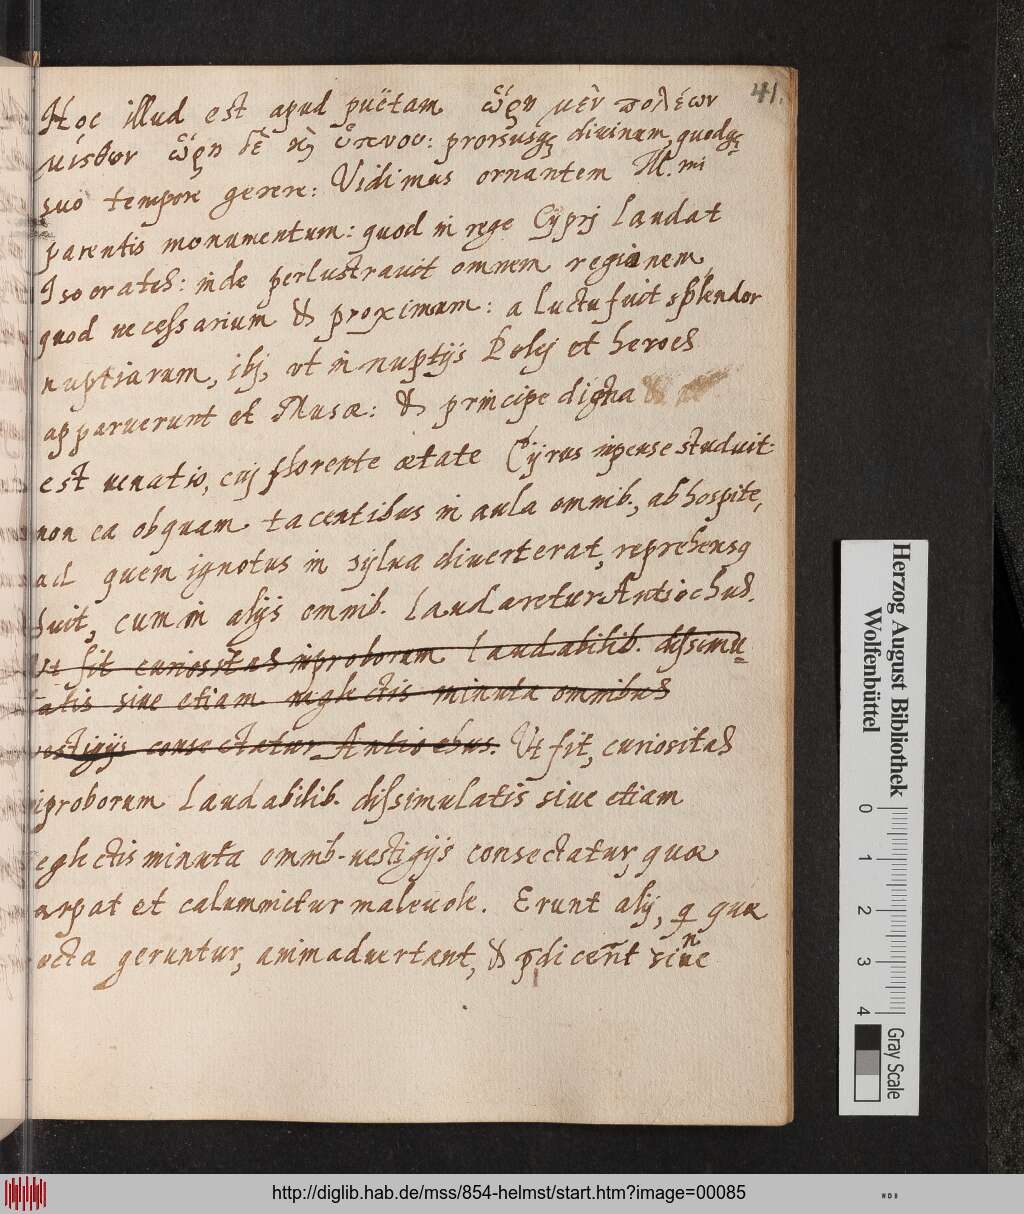 41.
Hoc illud est apud puëtam ὥρη μὲν πολέων
μύθων ὥρη δὲ ϗ ὕπνου: prorsusqȝ diuinum, quodqȝ
suo tempore gerere: Vidimus ornantem M. mi
parentis monumentum: quod in rege Cyprj laudat
Isocrates: inde perlustrauit omnem regionem,
quod necessarium & proximum: a luctu fuit splendor
nuptiarum, ibj, vt in nuptijs Pelej et heroes
apparuerunt et Musæ: & principe digna
est uenatio, cuj florente ætate Cyrus inpense studuit:
non ea obquam tacentibus in aula omnib., ab hospite,
ad quem ignotus in sylua diuerterat, reprehensq
fuit, cum in alijs omnib. laudaretur Antiochus.
Ut fit curiositas inproborum laudabilib. dissimu=
latis siue etiam neglectis minuta omnibus
vestigijs consectatur Antiochus. Ut fit, curiositas
inproborum laudabilib. dissimulatis siue etiam
neglectis minuta omnib. uestigijs consectatur, quæ
carpat et calumnietur maleuole. Erunt alij, q quæ
recta geruntur, animaduertant, & p̄dicent siue
Herzog August Bibliothek
Wolfenbüttel
0 1 2 3 4
Gray Scale
http://diglib.hab.de/mss/854-helmst/start.htm?image=00085